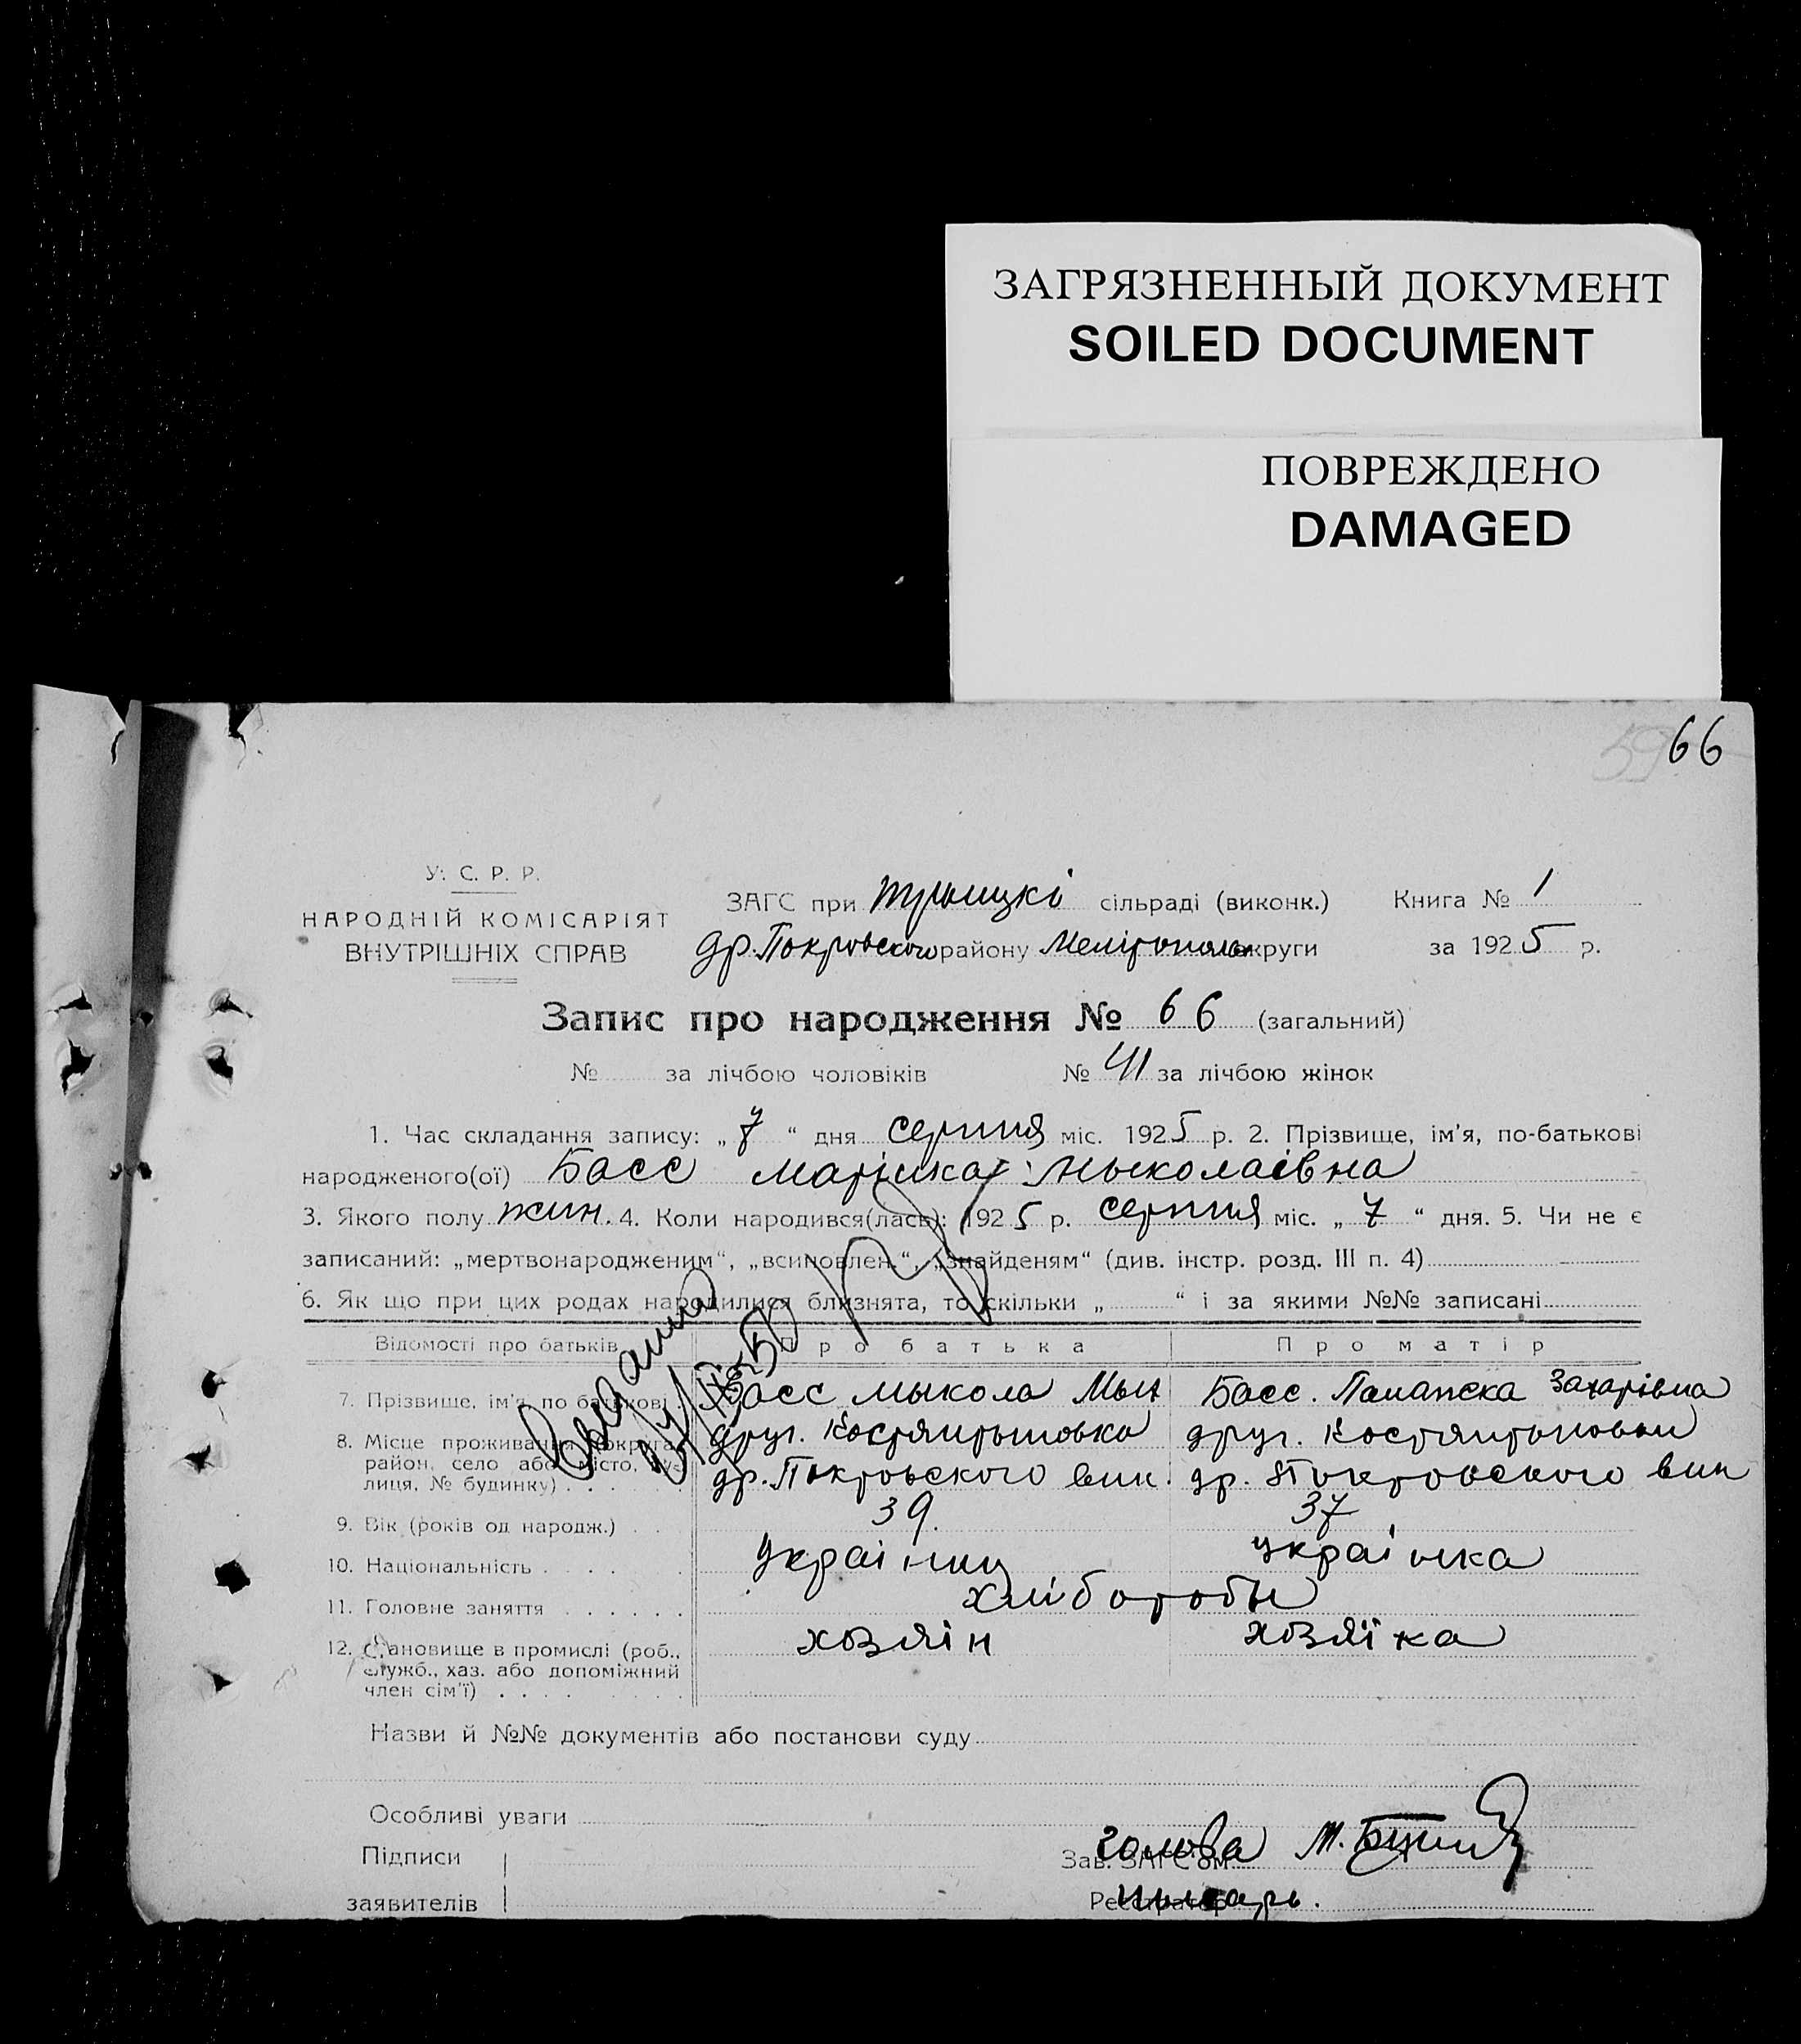 ЗАГРЯЗНЕННЫЙ ДОКУМЕНТ
SOILED DOCUMENT
ПОВРЕЖДЕНО
DAMAGED
59 66
У. С. Р. Р.
НАРОДНІЙ КОМІСАРІЯТ
ВНУТРІШНІХ СПРАВ
ЗАГС при сільраді (виконк.) Книга № 1
др. Покровского району Мелітополь округи за 1925 р.
Запис про народження № 66 (загальний)
№ за лічбою чоловіків № 41 за лічбою жінок
1. Час складання запису: „7“ дня серпня міс. 1925 р. 2. Прізвище, ім'я, по-батькові
народженого(ої) Басс Марійка Мыколаівна
3. Якого полу жин. 4. Коли народився(лась): 1925 р. серпня міс. „7“ дня. 5. Чи не є
записаний: „мертвонародженим“, „всиновлен.“, „знайденям“ (див. інстр. розд. III п. 4)
6. Як що при цих родах народилися близнята, то скільки „ “ і за якими №№ записані
Відомості про батьків Про батька Про матір
7. Прізвище, ім'я, по батькові Басс Мыкола Басс. Захарівна
8. Місце проживання (округа, район, село або місто, вулиця, № будинку) друг. Костянтыновка друг.
др. Покровского вик. др. Покровского вик
9. Вік (років од народж.) 39. 37
10. Національність українц українка
11. Головне заняття хлібороби
12. Становище в промислі (роб., служб., хаз. або допоміжний член сім'ї) хозяін хозяїка
Назви й №№ документів або постанови суду
Особливі уваги
Підписи
заявителів
Зав. ЗАГС'ом голова
Реєстратор